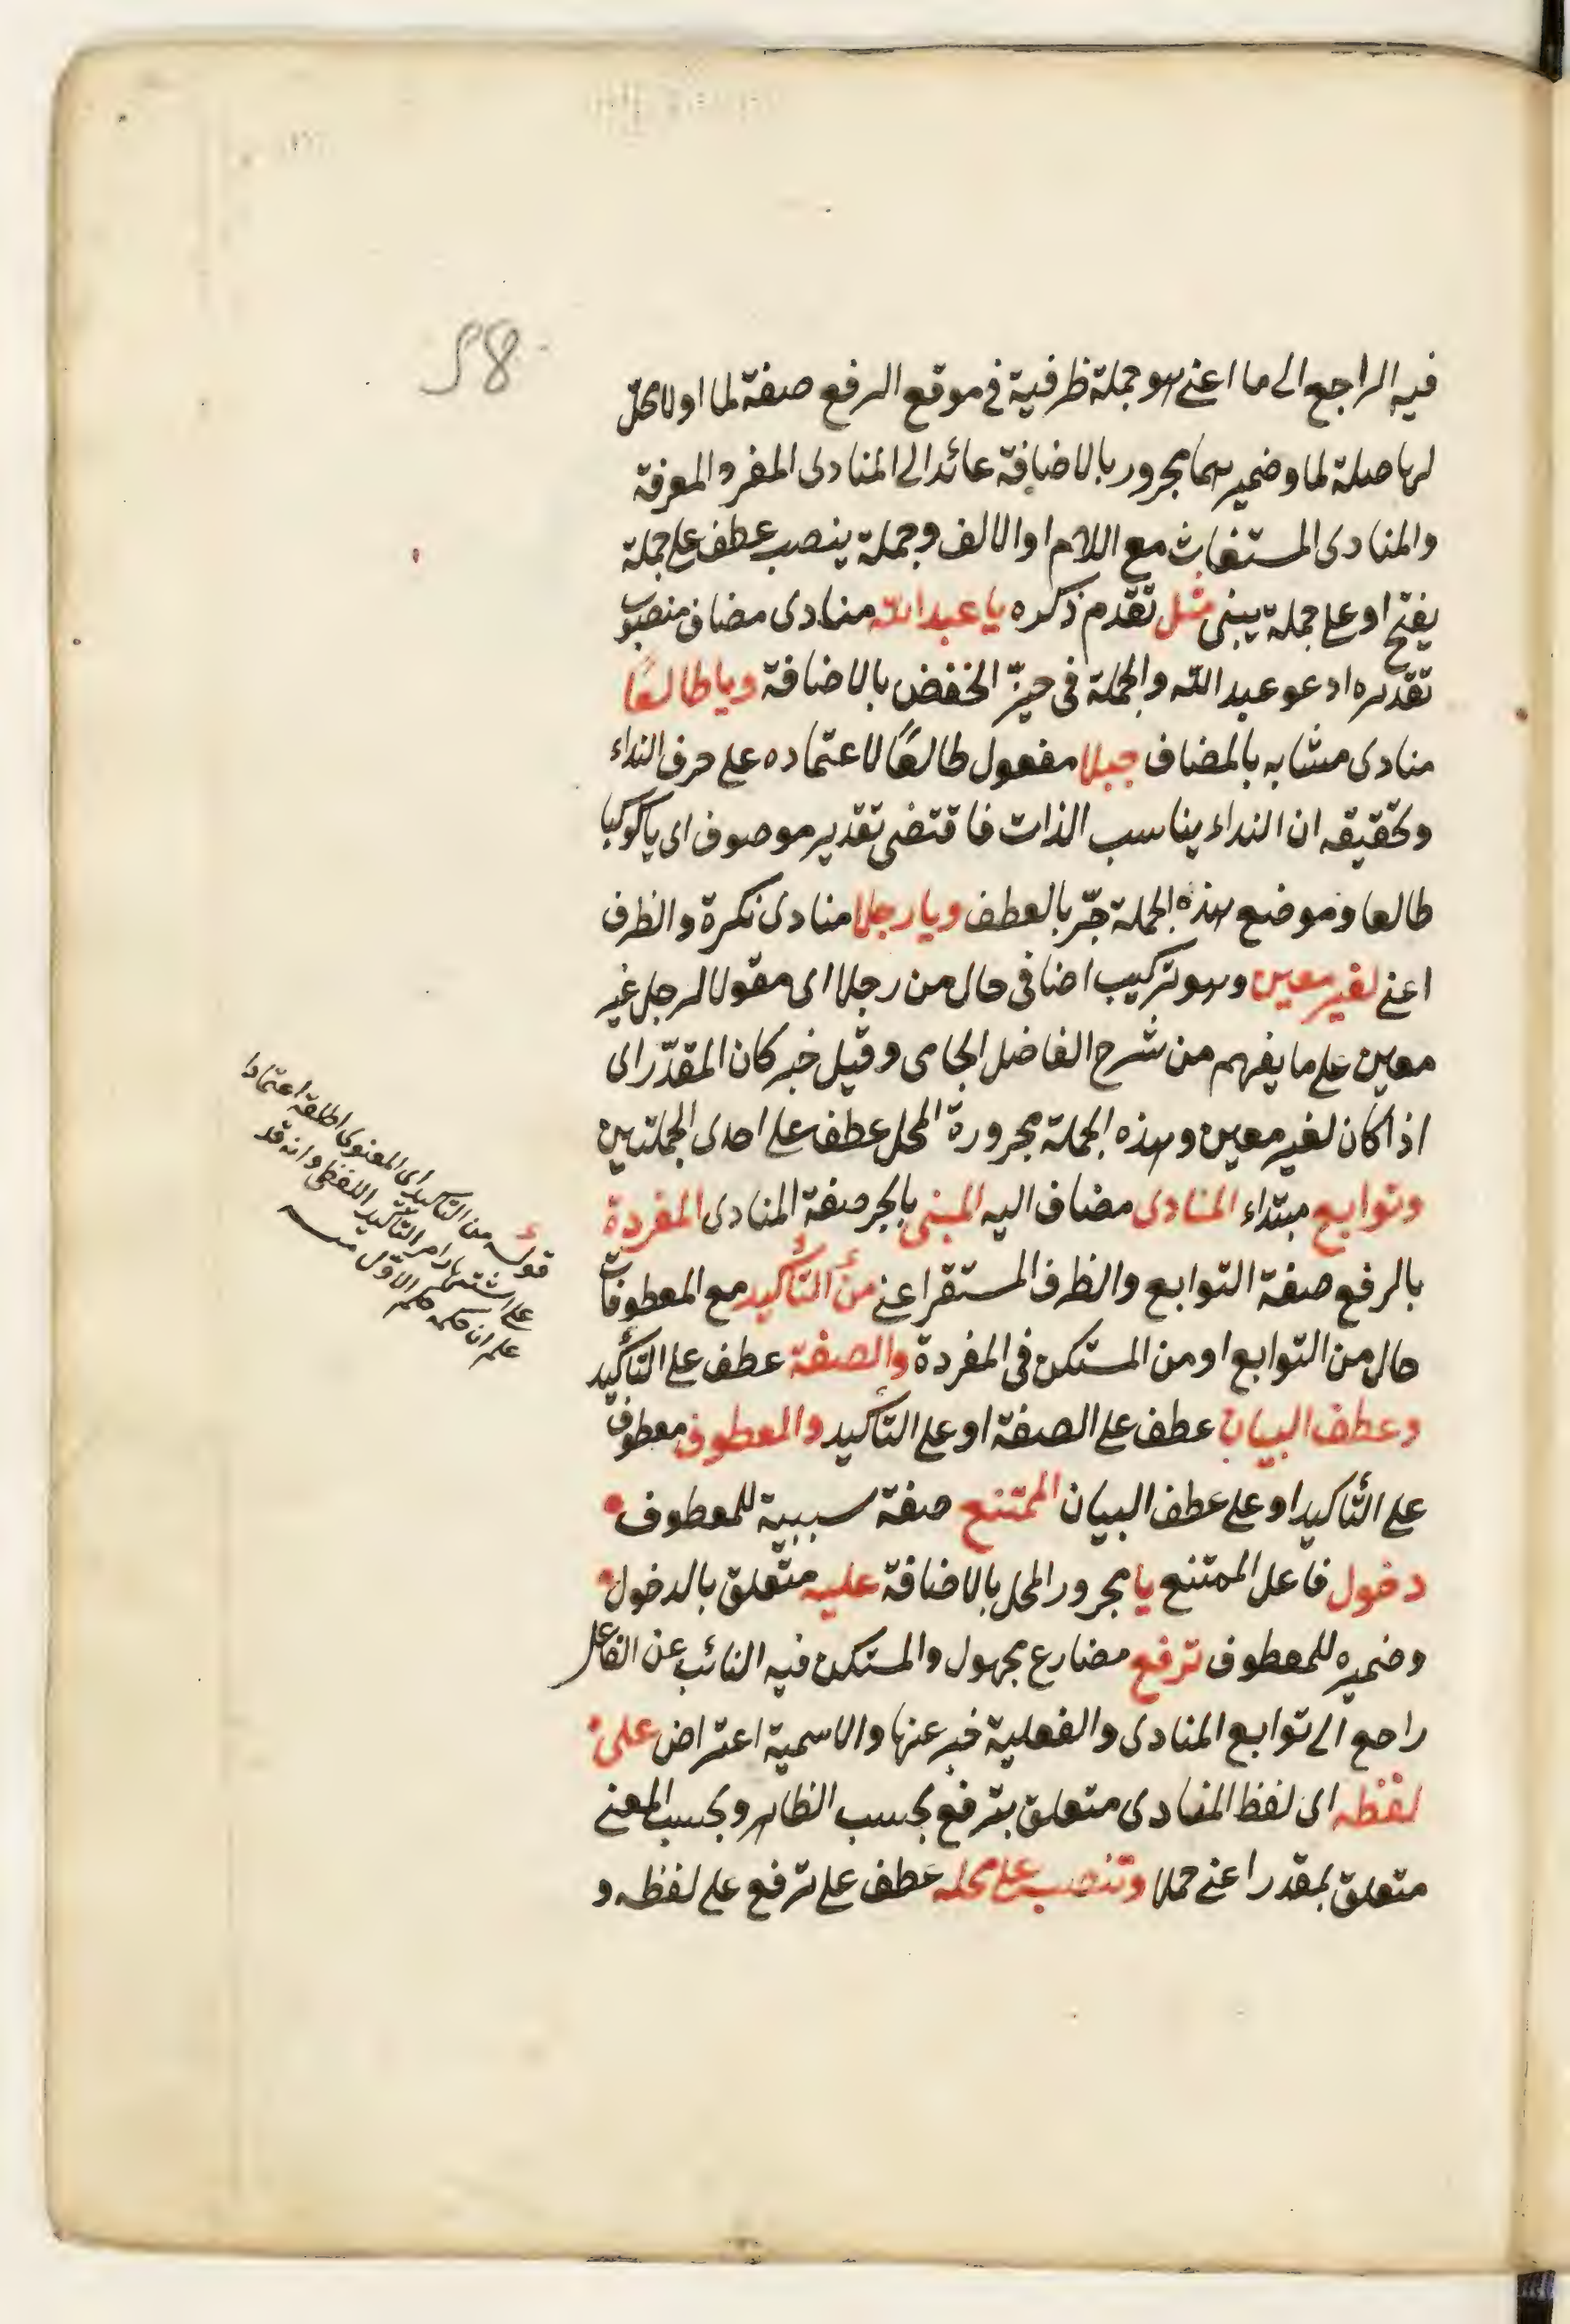 58
فيه الراجع الى ما اعنى هو جملة ظرفية فى موقع الرفع صفة لما او لا محل
لها صلة لما وضمير هما مجرور بالاضافة عائد الى المنادى المفرد المعرفة
والمنادى المستغاث مع اللام او الالف وجملة ينصب عطف على جملة
يفتح او على جملة يبنى مثل تقدم ذكره يا عبد الله منادى مضاف منصوب
تقديره ادعو عبد الله والجملة فى حيّز الخفض بالاضافة ويا طالعًا
منادى مشابه بالمضاف جبلا مفعول طالعًا لاعتماده على حرف النداء
وتحقيقه ان النداء يناسب الذات فاقتضى تقدير موصوف اى يا كوكبا
طالعا وموضع هذه الجملة جرّ بالعطف ويا رجلا منادى نكرة والظرف
اعنى لغير معين وهو تركيب اضافى حال من رجلا اى مقولا لرجل غير
معين على ما يفهم من شرح الفاضل الجامى وقيل خبر كان المقدّر اى
اذا كان لغير معين وهذه الجملة مجرورة المحل عطف على احدى الجملتين
وتوابع مبتداء المنادى مضاف اليه المبنى بالجر صفة المنادى المفردة
بالرفع صفة التوابع والظرف المستقر اعنى من التأكيد مع المعطوفات
حال من التوابع او من المستكن فى المفردة والصفة عطف على التأكيد
وعطف البيان عطف على الصفة او على التأكيد والمعطوف معطوف
على التأكيد او على عطف البيان الممتنع صفة سببية للمعطوف
دخول فاعل الممتنع يا مجرور المحل بالاضافة عليه متعلق بالدخول
وضميره للمعطوف ترفع مضارع مجهول والمستكن فيه النائب عن الفاعل
راجع الى توابع المنادى والفعلية خبر عنها والاسمية اعتراض على
لفظه اى لفظ المنادى متعلق بترفع بحسب الظاهر وبحسب المعنى
متعلق بمقدر اعنى حملا وتنصب على محله عطف على ترفع على لفظه و
قوله من التأكيد اى المعنوى اطلقه اعتمادا
على اشتهار امر التأكيد اللفظى وانه قد
علم ان حكمه حكم الاول منه